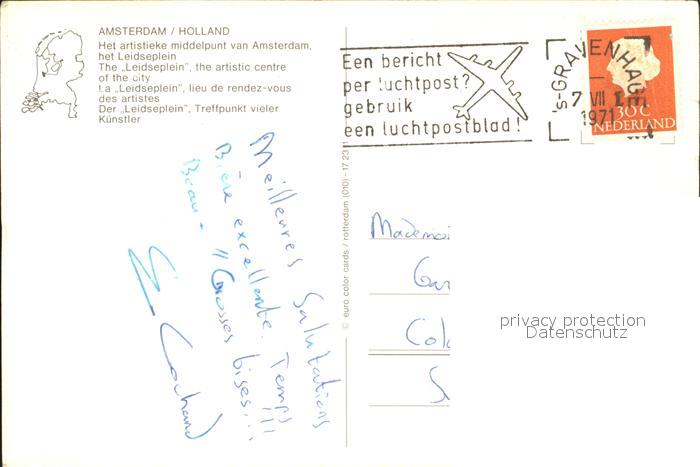 AMSTERDAM / HOLLAND
Het artistieke middelpunt van Amsterdam,
het Leidseplein
The „Leidseplein”, the artistic centre
of the city
La „Leidseplein”, lieu de rendez-vous
des artistes
Der „Leidseplein”, Treffpunkt vieler
Künstler
Een bericht
per luchtpost?
gebruik
een luchtpostblad!
's-GRAVENHAGE
7 VII
1971
30 C
NEDERLAND
© euro color cards / rotterdam (010) - 17 23
Meilleures Salutations
Bière excellente. Temps
Beau - Grosses bises!!!
Mademoi
privacy protection
Datenschutz